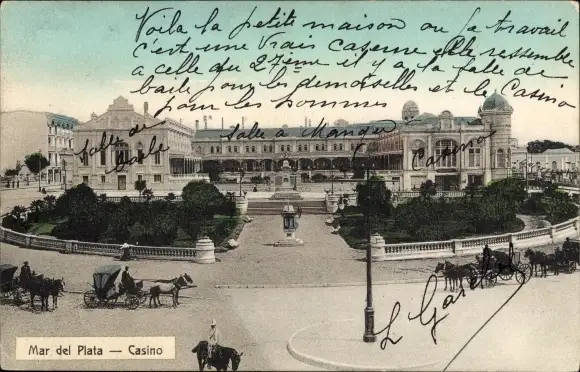 Voila la petite maison ou je travail
c'est une vrais caserne elle ressemble
a celle du 27ème il y a la salle de
baile pour les demoiselles et le Casino
pour les hommes
Salle de
baile
Salle a Manger
Casino
L Gar
Mar del Plata — Casino